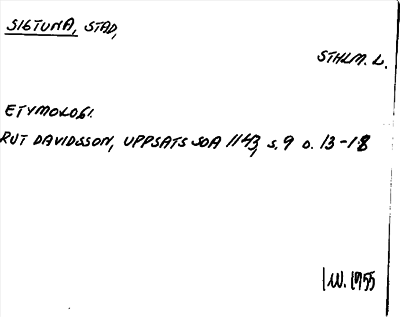 SIGTUNA, STAD,
STHLM. L.
ETYMOLOGI.
RUT DAVIDSSON, UPPSATS SOA 1143, s. 9 o. 13-18
W. 1955